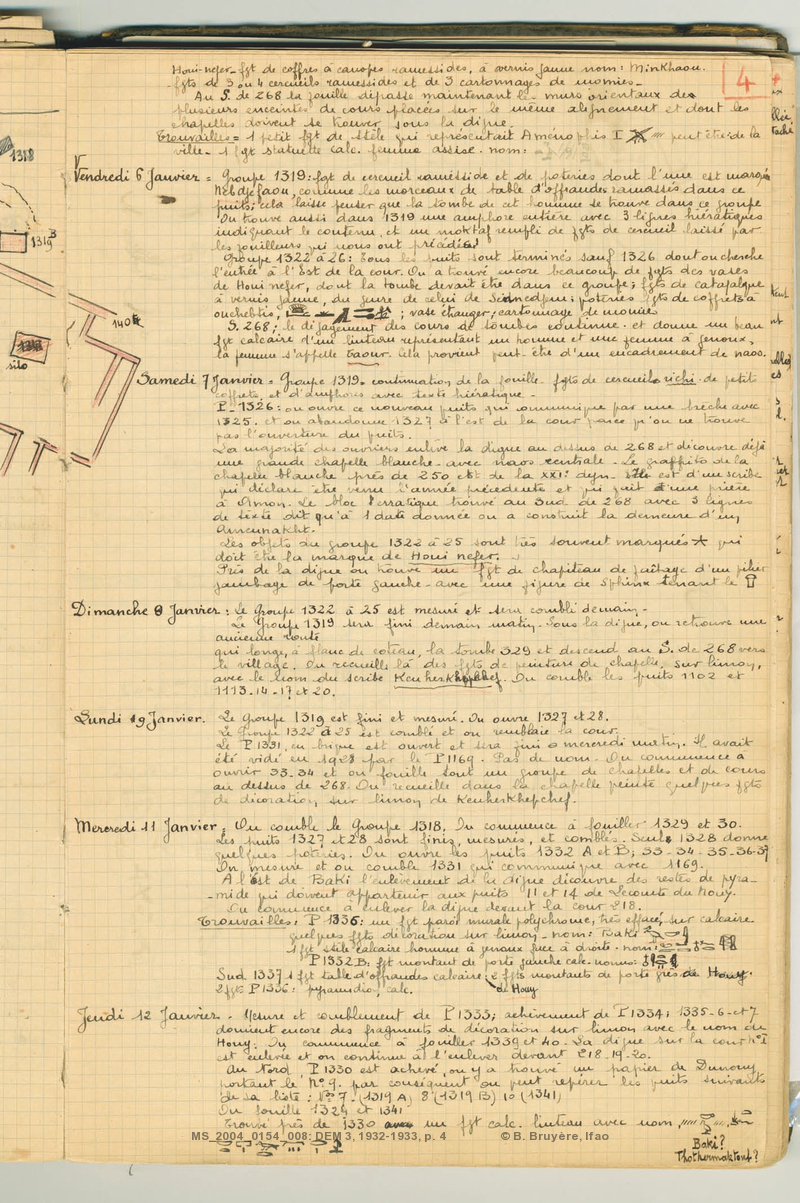 4
Houi-nefer - fgt de coffres à canopes ramessides, à vernis jaune nom: Minkhaou.
fgts de 3 ou 4 cercueils ramessides et de 3 cartonnages de momies -
Au S. de 268 la fouille dépasse maintenant les murs orientaux des
plusieurs enceintes de cours placées sur le même alignement et dont les
chapelles doivent se trouver sous la digue.
Trouvailles = 1 petit fgt de stèle qui représentait Aménophis I peut être de la
ville - 1 fgt statuette calc. femme assise. nom:
Vendredi 6 Janvier = Groupe 1319: fgt de cercueil ramesside et de poteries dont l'une est marquée
Nebdjefaou, comme les morceaux de table d'offrandes ramassés dans ce
puits; cela laisse penser que la tombe de cet homme se trouve dans ce groupe
On trouve aussi dans 1319 une amphore entière avec 3 lignes hiératiques
indiquant le contenu, et un moktaf rempli de fgts de cercueil laissé par
les fouilleurs qui nous ont précédés!
Groupe 1322 à 26: Tous les puits sont terminés sauf 1326 dont on cherche
l'entrée à l'Est de la cour. On a trouvé encore beaucoup de fgts des vases
de Houi nefer, dont la tombe devait être dans ce groupe; fgts de catafalque
à vernis jaune, du genre de celui de Sennedjem; poteries fgts de coffrets à
ouchebtis, ; vase étranger; cartonnage de momies
S. 268; le dégagement des cours de tombes continue. et donne un beau
fgt calcaire d'un linteau représentant un homme et une femme à genoux,
la femme s'appelle Taour. Cela provient peut-être d'un encadrement de naos.
Samedi 7 Janvier = Groupe 1319. continuation de la fouille - fgts de cercueils richi - de petits
coffrets, et d'amphores avec texte hiératique -
P. 1326: on ouvre ce nouveau puits qui communique par une brèche avec
1325. et on abandonne 1327 à l'est de la cour parce qu'on ne trouve
pas l'ouverture du puits.
La majorité des ouvriers enlève la digue au dessus de 268 et découvre déjà
une grande chapelle blanche - avec naos centrale - Le graffito de la
chapelle blanche près de 250 est de la XXI: dyn. est d'un scribe
qui déclare être venu l'année précédente et qui suit d'une prière
à Amon. Le bloc erratique trouvé au Sud de 268 avec 3 lignes
de texte dit qu'à 1 date donnée on a construit la demeure d'un
Amennakht.
Les objets du groupe 1322 à 25 sont très souvent marqués qui
doit être la marque de Houi nefer.
Près de la digue on trouve un fgt de chapiteau de faîtage d'un pilier
jambage de porte gauche - avec une figure de Sphinx tenant le
Dimanche 8 Janvier: Le Groupe 1322 à 25 est mesuré et sera comblé demain -
Le Groupe 1319 sera fini demain matin - Sous la digue, on retrouve une
ancienne route
qui longe, à flanc de coteau, la tombe 329 et descend au S. de 268 vers
le village. On recueille là des fgts de peinture de chapelle, sur limon,
avec le nom du scribe Kenherkhepchef. On comble les puits 1102 et
1113-14-17 et 20.
Lundi 9 Janvier. Le Groupe 1319 est fini et mesuré. On ouvre 1327 et 28.
Le Groupe 1322 à 25 est comblé et on remblaie la cour.
Le P 1331, en brique est ouvert et sera fini mercredi matin. Il avait
été vidé en 1928 par le P 1169. Pas de nom. On commence à
ouvrir 33-34 et on fouille sous un groupe de chapelles et de cours
au dessus de 268. On recueille dans la chapelle peinte quelques fgts
de décoration, sur limon de Kenherkhepchef.
Mercredi 11 Janvier: On comble le Groupe 1318. On commence à fouiller 1329 et 30.
Les puits 1327 et 28 sont finis, mesurés, et comblés. Seul 1328 donne
quelques poteries. On ouvre les puits 1332 A et B; 33-34-35-36-37
On mesure et on comble 1331 qui communique avec 1169.
A l'Est de Baki l'enlèvement de la digue découvre des restes de pyra-
-mide qui doivent appartenir aux puits 11 et 14 de Lecomte du Nouy.
On commence à enlever la digue devant la cour 218.
Trouvailles: P 1336: un fgt paroi murale polychrome, très effacé, sur calcaire
quelques fgts décoration sur limon - nom: Baki
1 fgt stèle calcaire homme à genoux face à droite. nom:
P 1332 B: fgt montant de porte gauche calc. noms:
Sud 1337 1 fgt table d'offrandes calcaire; 2 fgts montants de porte grès de Houy.
2 fgts P 1336: pyramidion, calc. de Houy
Jeudi 12 Janvier - Mesure et comblement de P 1333; achèvement de P 1334; 1335-6-et 7
donnent encore des fragments de décoration sur limon avec le nom de
Houy. On commence à fouiller 1339 et 40. La digue sur la cour n°1
est enlevée et on continue à l'enlever devant 218-19-20.
Au Nord, P 1330 est achevé, on y a trouvé un papier de Dunouy
portant le N° 9. par conséquent on peut repérer les puits suivants
de sa liste: N° 7. (1319 A) 8 (1319 B) 10 (1341)
On fouille 1324 et 1341
Trouvé près de 1330 un fgt calc. linteau avec nom
Baki?
Thothermaktouf?
1318
1319 B
140
silo
MS_2004_0154_008: DEM 3, 1932-1933, p. 4 © B. Bruyère, Ifao